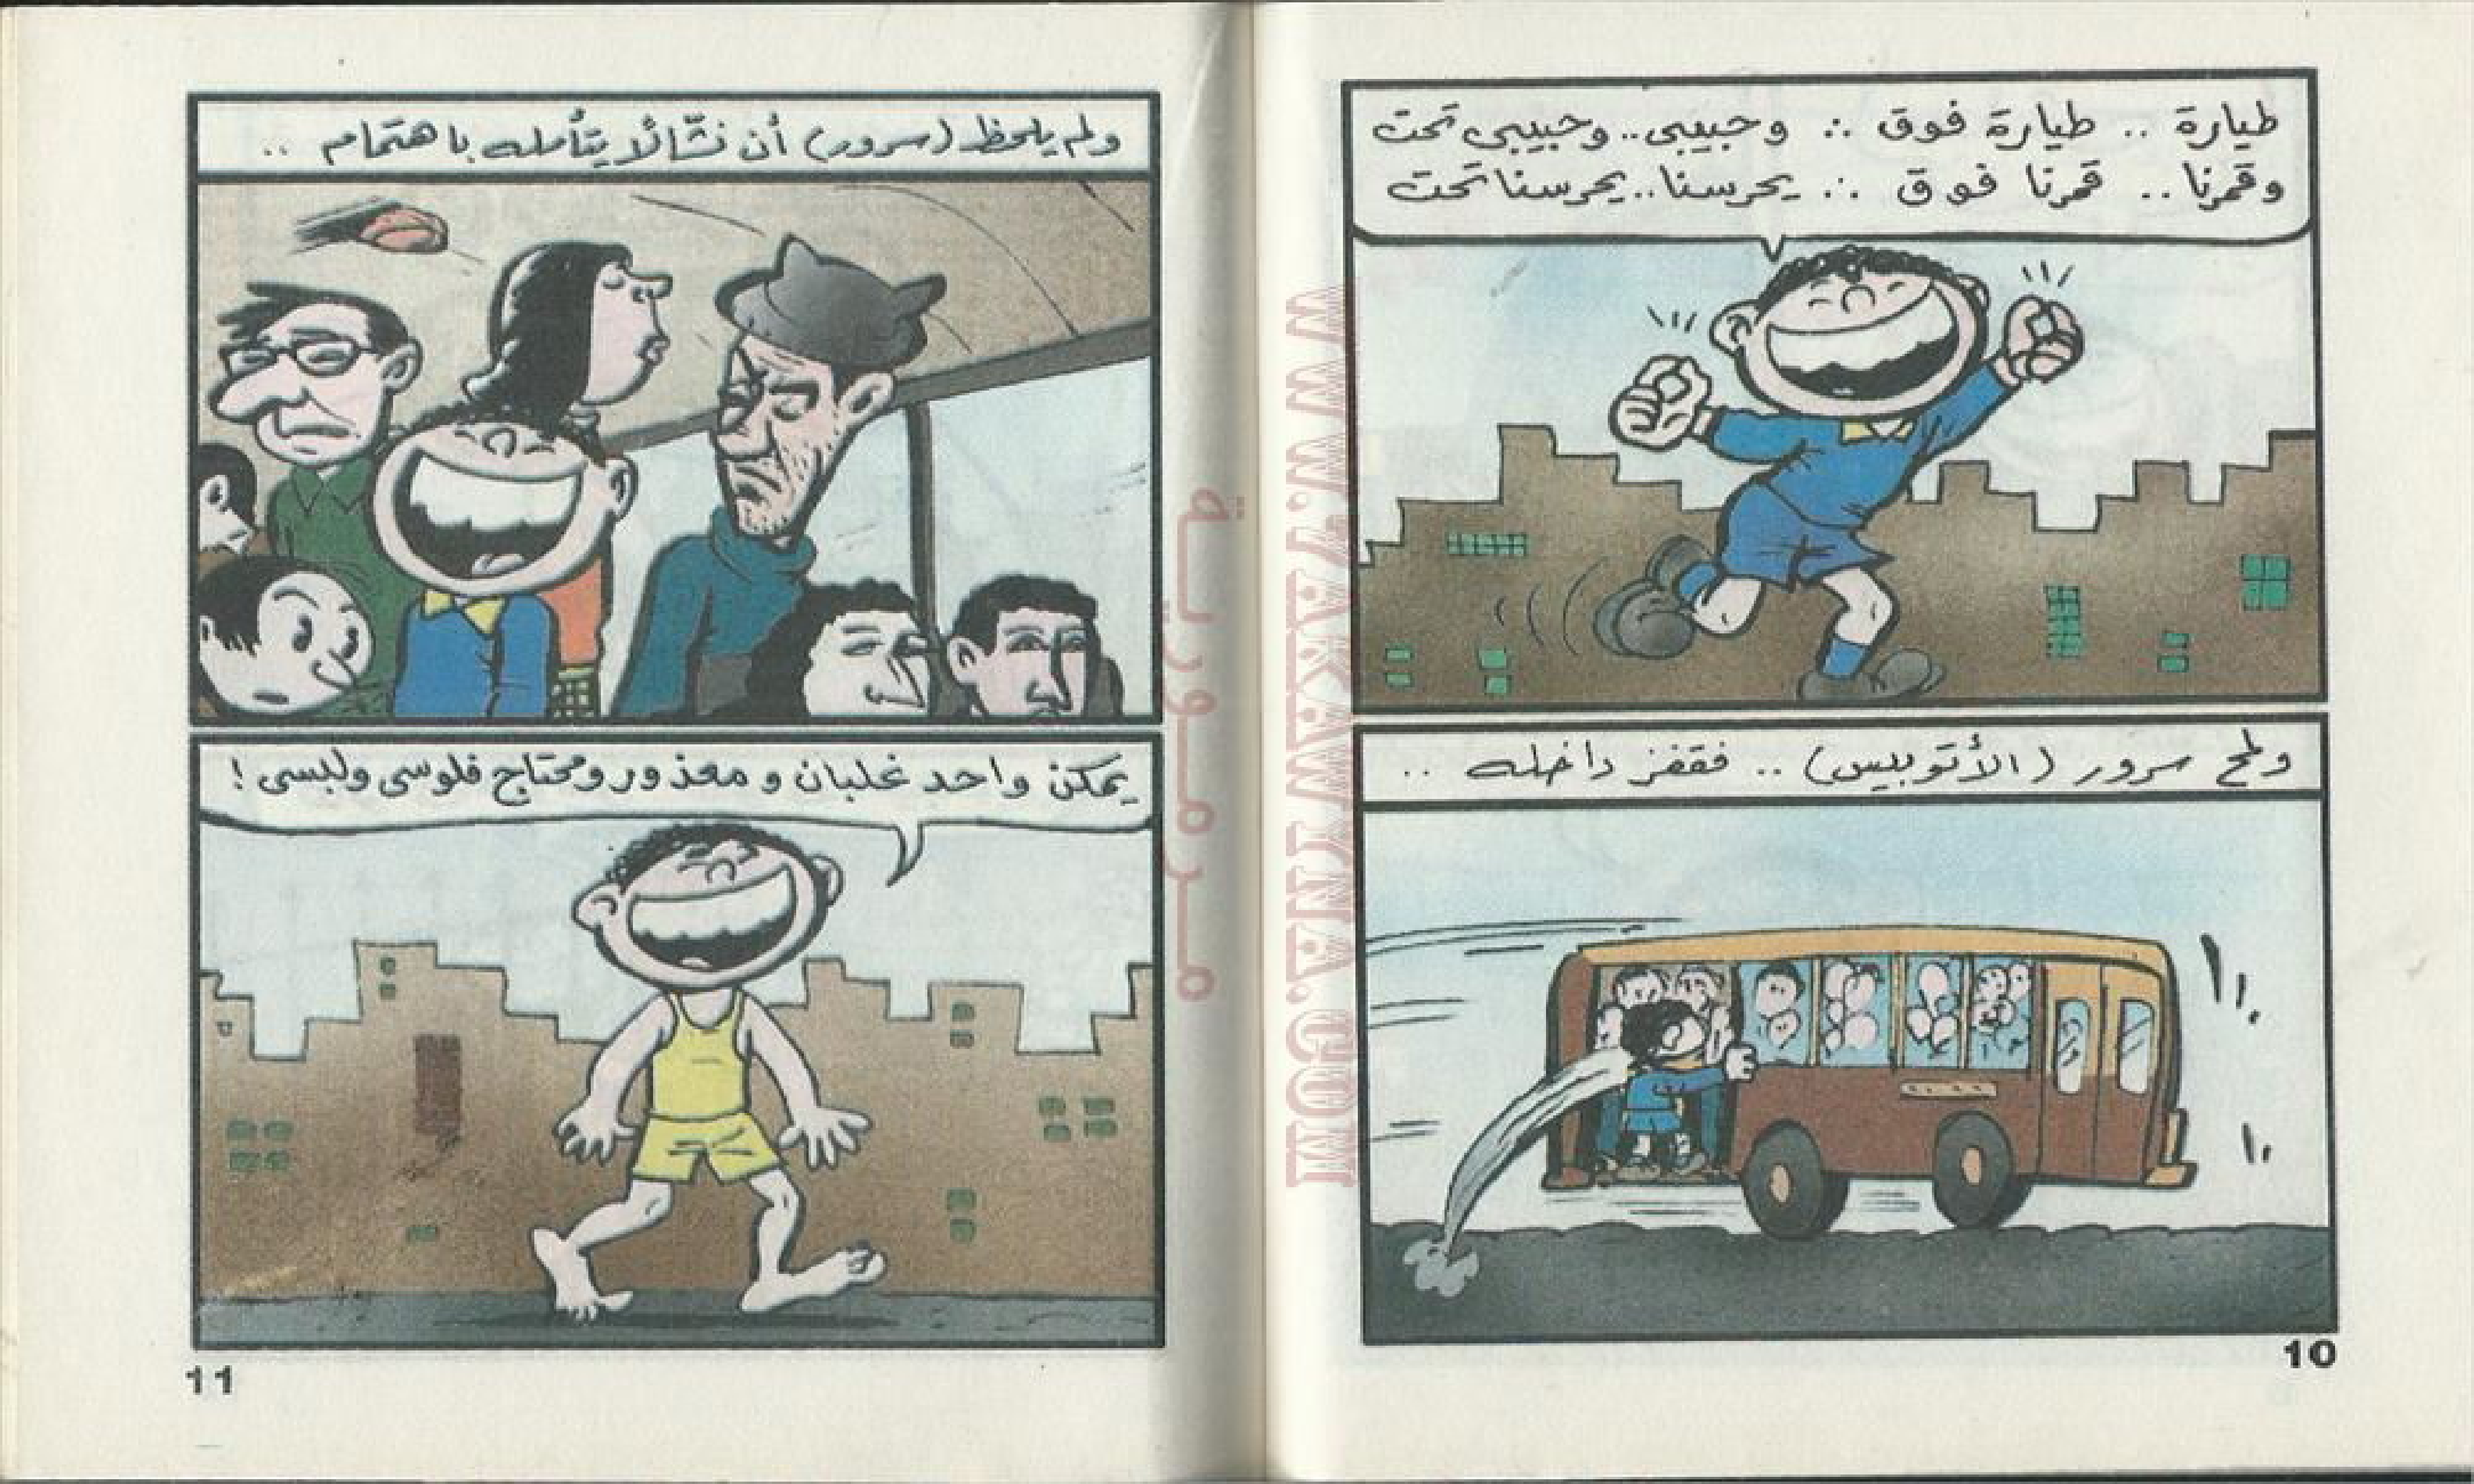 طيارة .. طيارة فوق .:. وحبيبى.. وحبيبى تحت
وقمرنا .. قمرنا فوق .:. يحرسنا.. يحرسنا تحت
ولمح سرور (الأتوبيس) .. فقفز داخله ..
10
ولم يلحظ (سرور) أن نشّالًا يتأمله باهتمام ..
يمكن واحد غلبان و معذور ومحتاج فلوسى ولبسى !
11